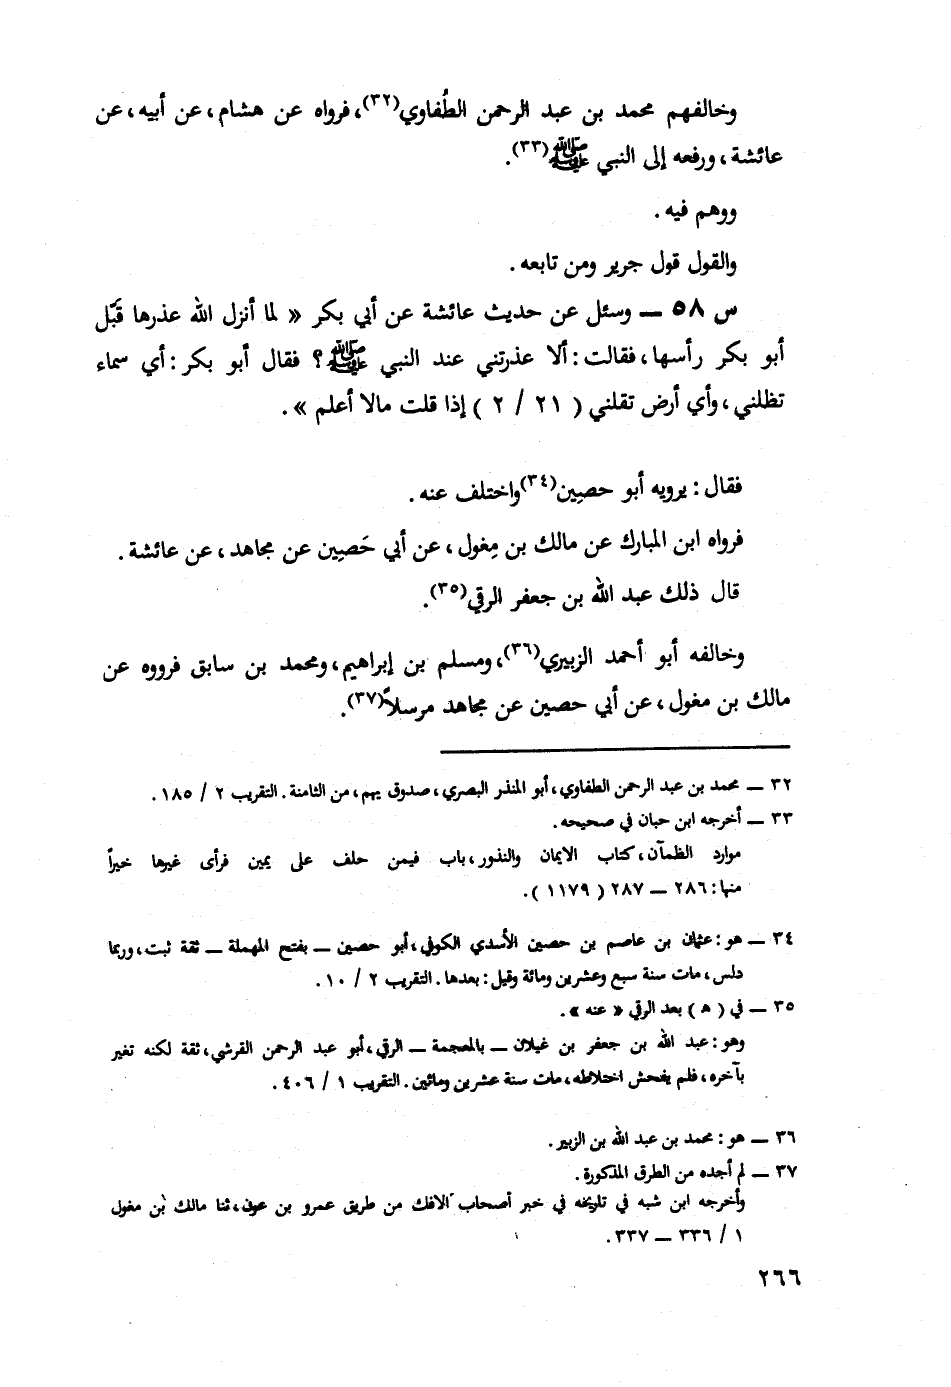 وخالفهم محمد بن عبد الرحمن الطُفاوي(٣٢)، فرواه عن هشام، عن أبيه، عن
عائشة، ورفعه إلى النبي ﷺ(٣٣).
ووهم فيه.
والقول قول جرير ومن تابعه.
س ٥٨ ــ وسئل عن حديث عائشة عن أبي بكر « لما أنزل الله عذرها قَبّل
أبو بكر رأسها، فقالت: ألا عذرتني عند النبي ﷺ؟ فقال أبو بكر: أي سماء
تظلني، وأي أرض تقلني ( ٢١ / ٢ ) إذا قلت مالا أعلم ».
فقال: يرويه أبو حصين(٣٤) واختلف عنه.
فرواه ابن المبارك عن مالك بن مِغول، عن أبي حَصِين عن مجاهد، عن عائشة.
قال ذلك عبد الله بن جعفر الرقي(٣٥).
وخالفه أبو أحمد الزبيري(٣٦)، ومسلم بن إبراهيم، ومحمد بن سابق فرووه عن
مالك بن مغول، عن أبي حصين عن مجاهد مرسلاً(٣٧).
٣٢ ــ محمد بن عبد الرحمن الطفاوي، أبو المنذر البصري، صدوق يهم، من الثامنة. التقريب ٢ / ١٨٥.
٣٣ ــ أخرجه ابن حبان في صحيحه.
موارد الظمآن، كتاب الايمان والنذور، باب فيمن حلف على يمين فرأى غيرها خيراً
منها: ٢٨٦ ــ ٢٨٧ ( ١١٧٩ ).
٣٤ ــ هو: عثمان بن عاصم بن حصين الأسدي الكوفي، أبو حصين ــ بفتح المهملة ــ ثقة ثبت، وربما
دلس، مات سنة سبع وعشرين ومائة وقيل: بعدها. التقريب ٢ / ١٠.
٣٥ ــ في ( ه ) بعد الرقي « عنه ».
وهو: عبد الله بن جعفر بن غيلان ــ بالمعجمة ــ الرقي، أبو عبد الرحمن القرشي، ثقة لكنه تغير
بآخره، فلم يفحش اختلاطه، مات سنة عشرين ومائتين. التقريب ١ / ٤٠٦.
٣٦ ــ هو: محمد بن عبد الله بن الزبير.
٣٧ ــ لم أجده من الطرق المذكورة.
وأخرجه ابن شبه في تاريخه في خبر أصحاب الافك من طريق عمرو بن عوف، ثنا مالك بن مغول
١ / ٣٣٦ ــ ٣٣٧.
٢٦٦